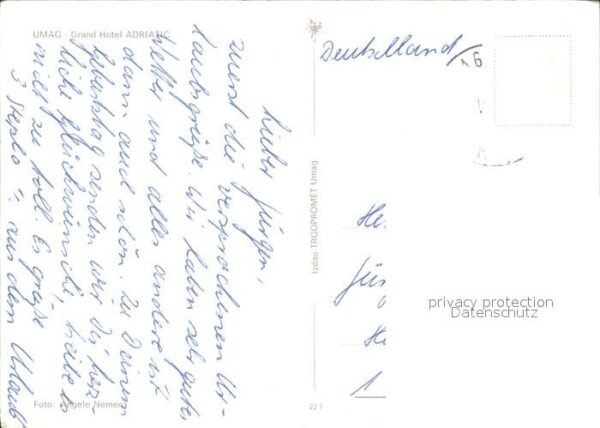 UMAG - Grand Hotel ADRIATIC
Lieber Jürgen,
zuerst die versprochenen Ur-
laubsgrüße. Wir haben sehr gutes
Wetter und alles andere ist
dann auch schön. Zu Deinem
Geburtstag senden wir Dir herz-
liche Glückwünsche, treibe es
nicht zu toll. Es grüßt
3 aus dem Urlaub
Foto: Angelo Nemec
Izdao TRGOPROMET Umag
22 T
Deutschland
16
He
Jür
privacy protection
Datenschutz
He
1